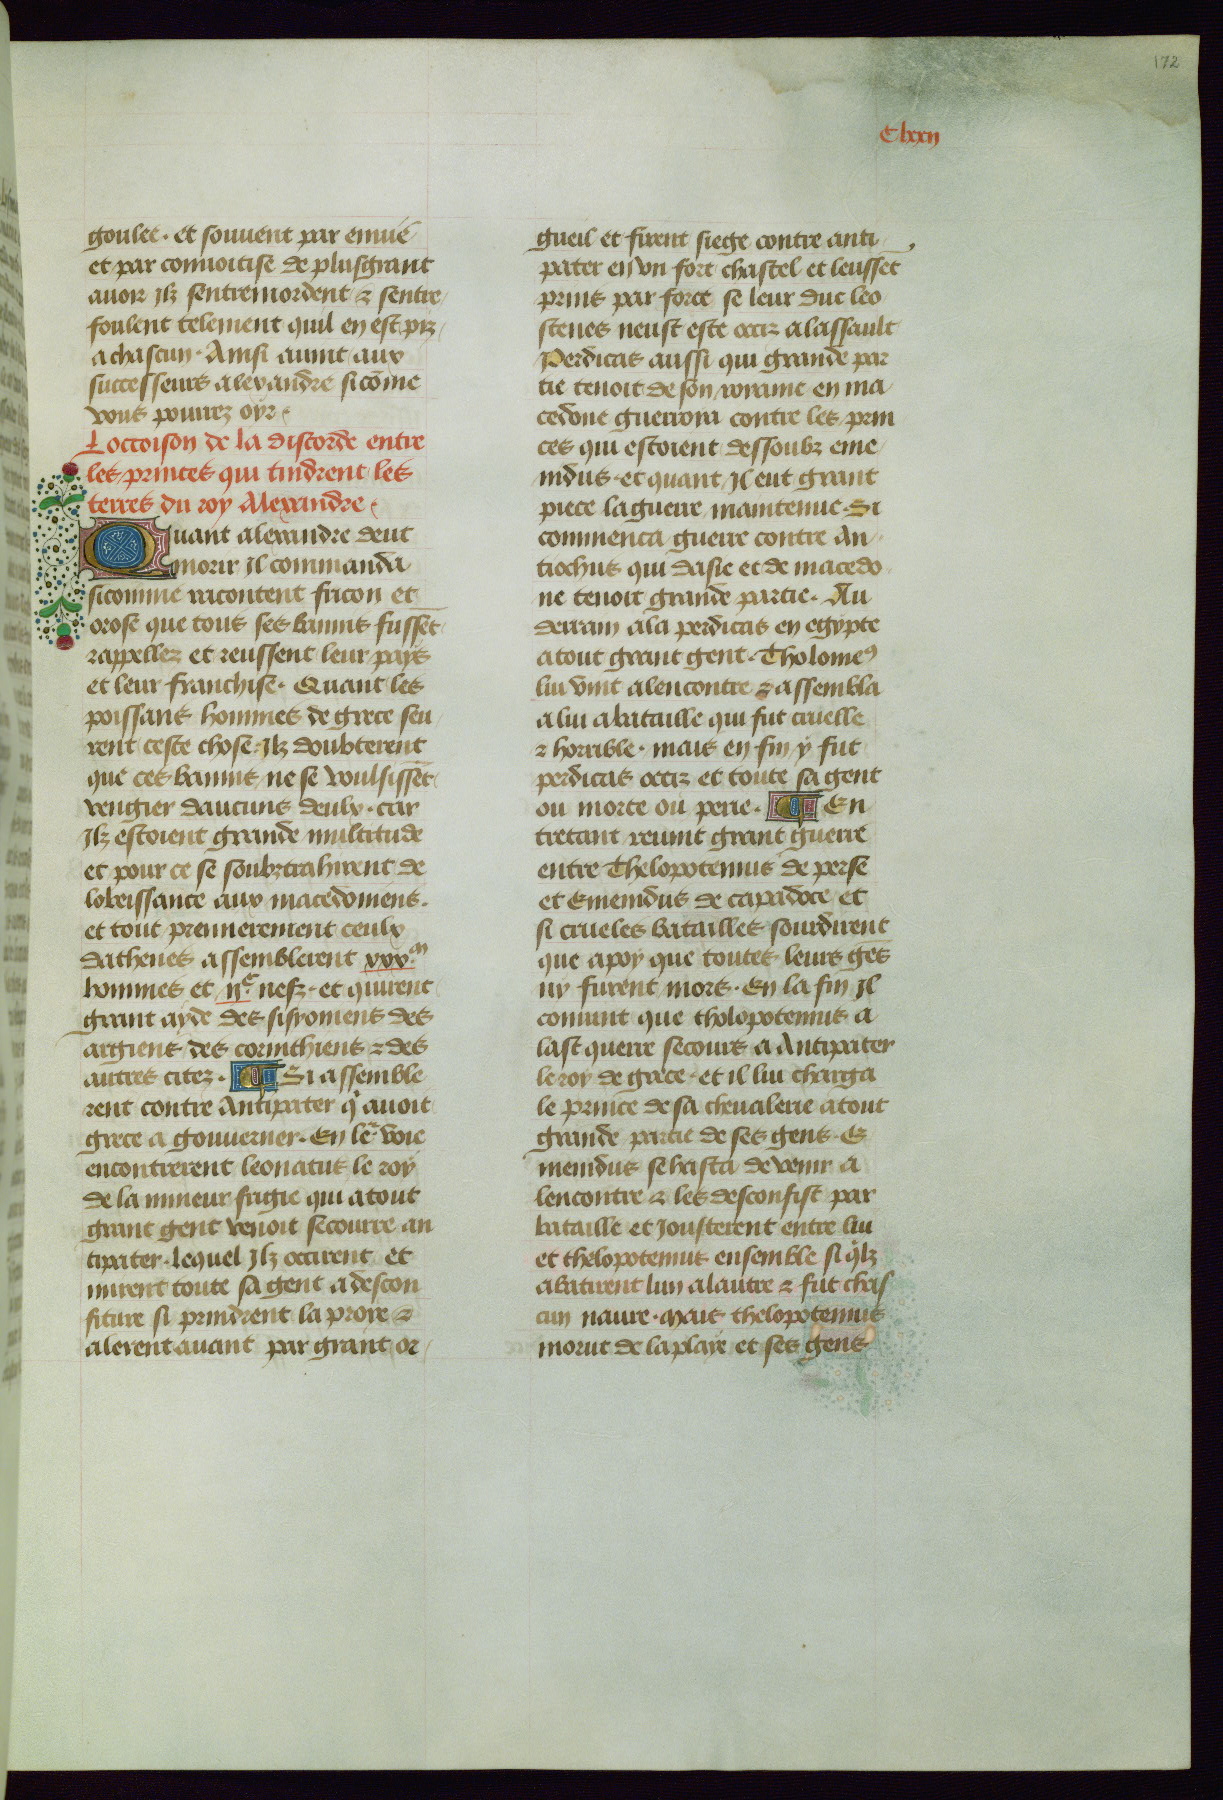 172
Clxxij
goulee · et souuent par enuie
et par conuoitise de plusgrant
auoir Ilz sentremordent & sentre
foulent telement quil en est piz
a chascun · Ainsi auint aux
successeurs alexandre sicōme
vous pourrez oyr ·
Loccoison de la discorde entre
les princes qui tindrent les
terres du roy Alexandre ·
Quant alexandre deut
morir Il commanda
sicomme racontent fricon et
orose que tous ses bannis fussēt
rappellez et reussent leur pays
et leur franchise · Quant les
poissans hommes de grece seu
rent ceste chose Ilz doubterent
que ces bannis ne se voulsissēt
vengier daucuns deulx · car
Ilz estoient grande multitude
et pour ce se soubztrahirent de
lobeissance aux macedoniens ·
et tout premierement ceulx
dathenes assemblerent xxx.m
hommes et ij.c nefz · et quirent
grant ayde des sisyoniens des
argiens des corinthiens & des
autres citez · Si assemble
rent contre Antipater q' auoit
grece a gouuerner · En leᵉ voie
encontrerent leonatus le roy
de la mineur frigie qui atout
grant gent venoit secourre an
tipater · lequel Ilz occirent et
mirent toute sa gent a descon
fiture si prindrent la proie &
alerent auant par grant or
gueil et firent siege contre anti
pater en vn fort chastel et leussēt
prins par force se leur duc leo
stenes neust este occiz a lassault
Perdicas aussi qui grande par
tie tenoit de son roiaume en ma
cedone guerroia contre les prin
ces qui estoient dessoubz eme
nidus · et quant Il eut grant
piece la guerre maintenue · Si
commenca guerre contre An
tiochus qui dasie et de macedo
ne tenoit grande partie · Au
derrain ala perdicas en egypte
atout grant gent · Tholome9
lui vint a lencontre & assembla
a lui a bataille qui fut cruelle
& horrible · mais en fin y fut
perdicas occiz et toute sa gent
ou morte ou perie · En
tretant reuint grant guerre
entre Thelopotemus de perse
et Emenidus de capadoce et
si crueles batailles sourdirent
que a poy que toutes leurs gēs
ny furent mors · En la fin Il
conuint que tholopotemus a
last querre secours a Antipater
le roy de grece · et il lui charga
le prince de sa cheualerie atout
grande partie de ses gens · E
menidus se hasta de venir a
lencontre & les desconfist par
bataille et Jousterent entre lui
et thelopotemus ensemble si q'lz
abatirent lun a lautre & fut chas
cun naure · Mais thelopotemus
morut de la playe et ses gens